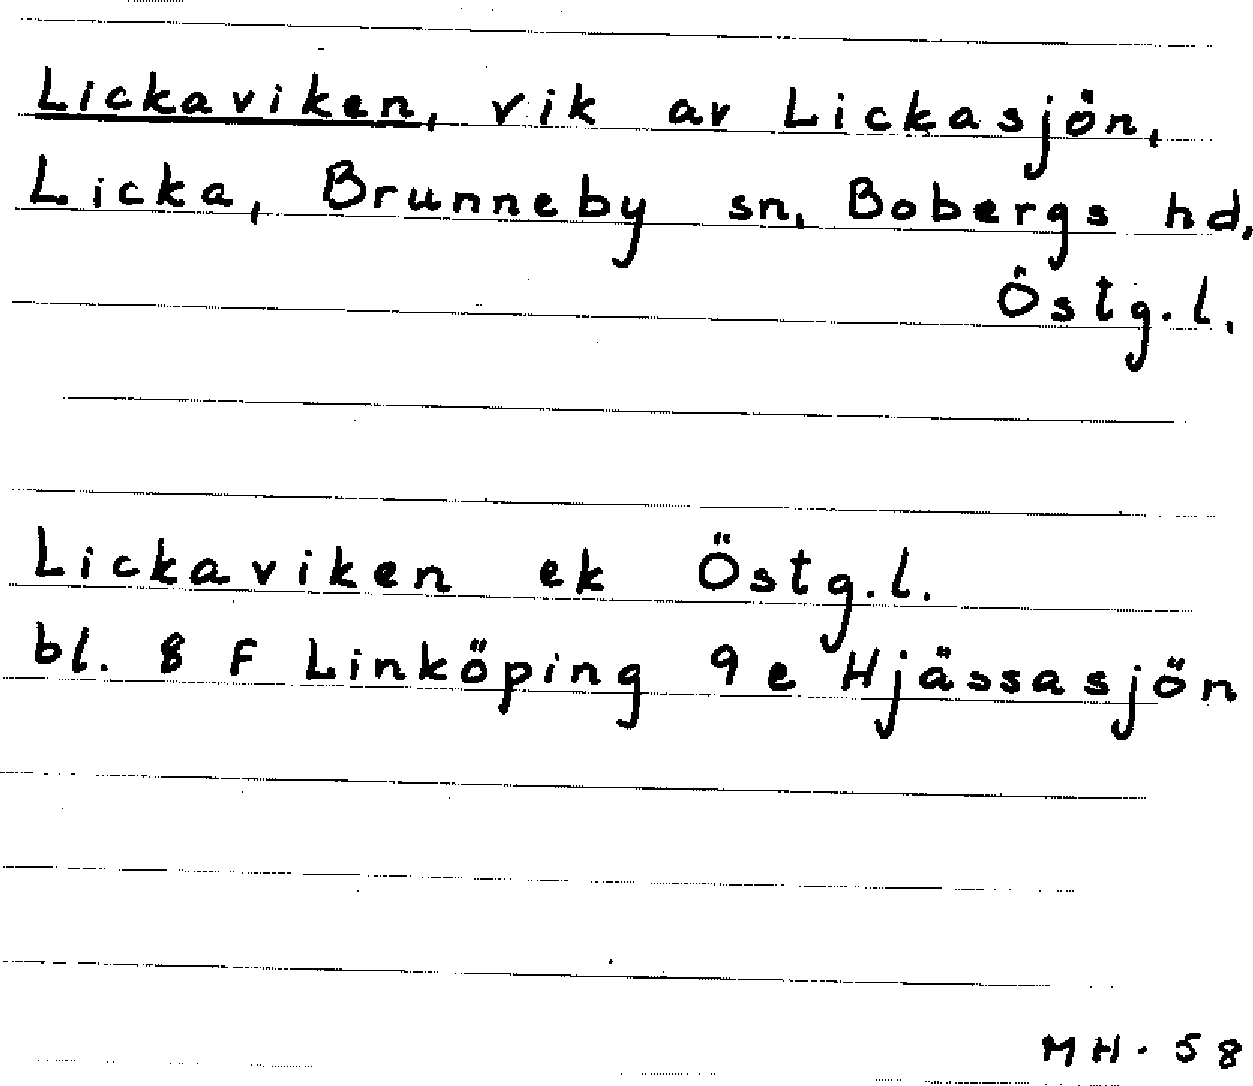 Lickaviken, vik av Lickasjön,
Licka, Brunneby sn, Bobergs hd,
Östg.l.
Lickaviken ek Östg.l.
bl. 8 F Linköping 9e Hjässasjön
MH. 58